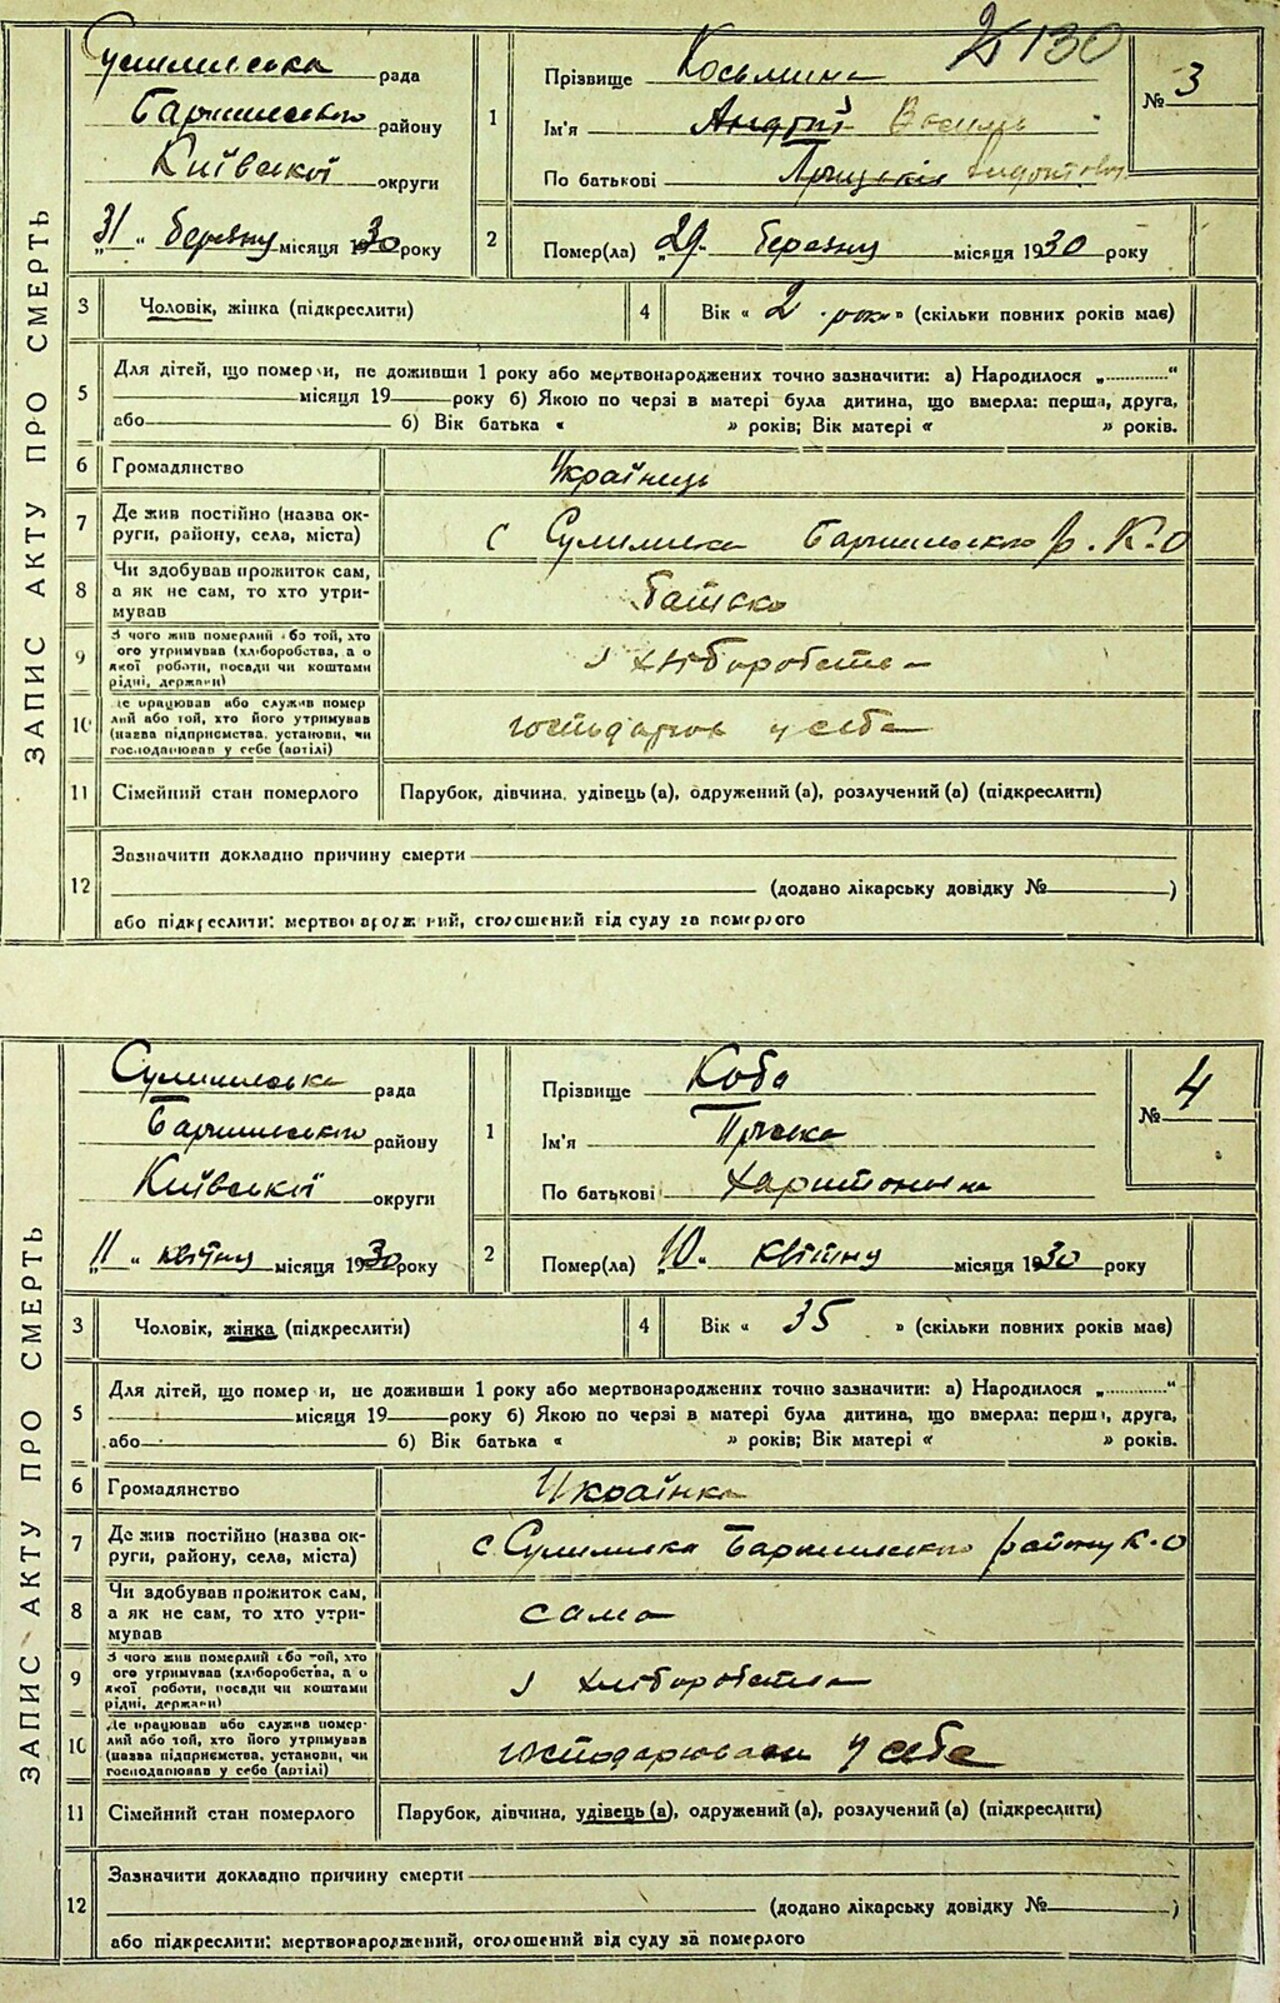 130
ЗАПИС АКТУ ПРО СМЕРТЬ
Сулимівська рада
Баришівського району
Київської округи
„31“ березня місяця 1930 року
1
Прізвище Косьмина
Ім'я Андрій Василь
По батькові
№ 3
2
Помер(ла) „29“ березня місяця 1930 року
3
Чоловік, жінка (підкреслити)
4
Вік « 2 роки » (скільки повних років має)
5
Для дітей, що померли, не доживши 1 року або мертвонароджених точно зазначити: а) Народилося „ “
місяця 19 року б) Якою по черзі в матері була дитина, що вмерла: перша, друга,
або б) Вік батька « » років; Вік матері « » років.
6
Громадянство
Українець
7
Де жив постійно (назва ок-
руги, району, села, міста)
с Сулимівка Баришівського р. К-О
8
Чи здобував прожиток сам,
а як не сам, то хто утри-
мував
батько
9
З чого жив померлий або той, хто
ого утримував (хліборобства, а о
якої роботи, посади чи коштами
рідні, держави)
з хліборобства
10
Де працював або служив помер
лий або той, хто його утримував
(назва підприємства, установи, чи
господарював у себе (артілі)
господарюв у себе
11
Сімейний стан померлого
Парубок, дівчина, удівець (а), одружений (а), розлучений (а) (підкреслити)
12
Зазначити докладно причину смерти
(додано лікарську довідку № )
або підкреслити: мертвонароджений, оголошений від суду за померлого
ЗАПИС АКТУ ПРО СМЕРТЬ
Сулимівська рада
Баришівського району
Київської округи
„11“ квітня місяця 1930 року
1
Прізвище Коба
Ім'я Пріська
По батькові Харитонівна
№ 4
2
Помер(ла) „10“ квітня місяця 1930 року
3
Чоловік, жінка (підкреслити)
4
Вік « 35 » (скільки повних років має)
5
Для дітей, що померли, не доживши 1 року або мертвонароджених точно зазначити: а) Народилося „ “
місяця 19 року б) Якою по черзі в матері була дитина, що вмерла: перша, друга,
або б) Вік батька « » років; Вік матері « » років.
6
Громадянство
Українка
7
Де жив постійно (назва ок-
руги, району, села, міста)
с. Сулимівка Баришівського району К-О
8
Чи здобував прожиток сам,
а як не сам, то хто утри-
мував
сама
9
З чого жив померлий або той, хто
ого утримував (хліборобства, а о
якої роботи, посади чи коштами
рідні, держави)
з хліборобства
10
Де працював або служив помер-
лий або той, хто його утримував
(назва підприємства, установи, чи
господарював у себе (артілі)
господарювала у себе
11
Сімейний стан померлого
Парубок, дівчина, удівець (а), одружений (а), розлучений (а) (підкреслити)
12
Зазначити докладно причину смерти
(додано лікарську довідку № )
або підкреслити: мертвонароджений, оголошений від суду за померлого